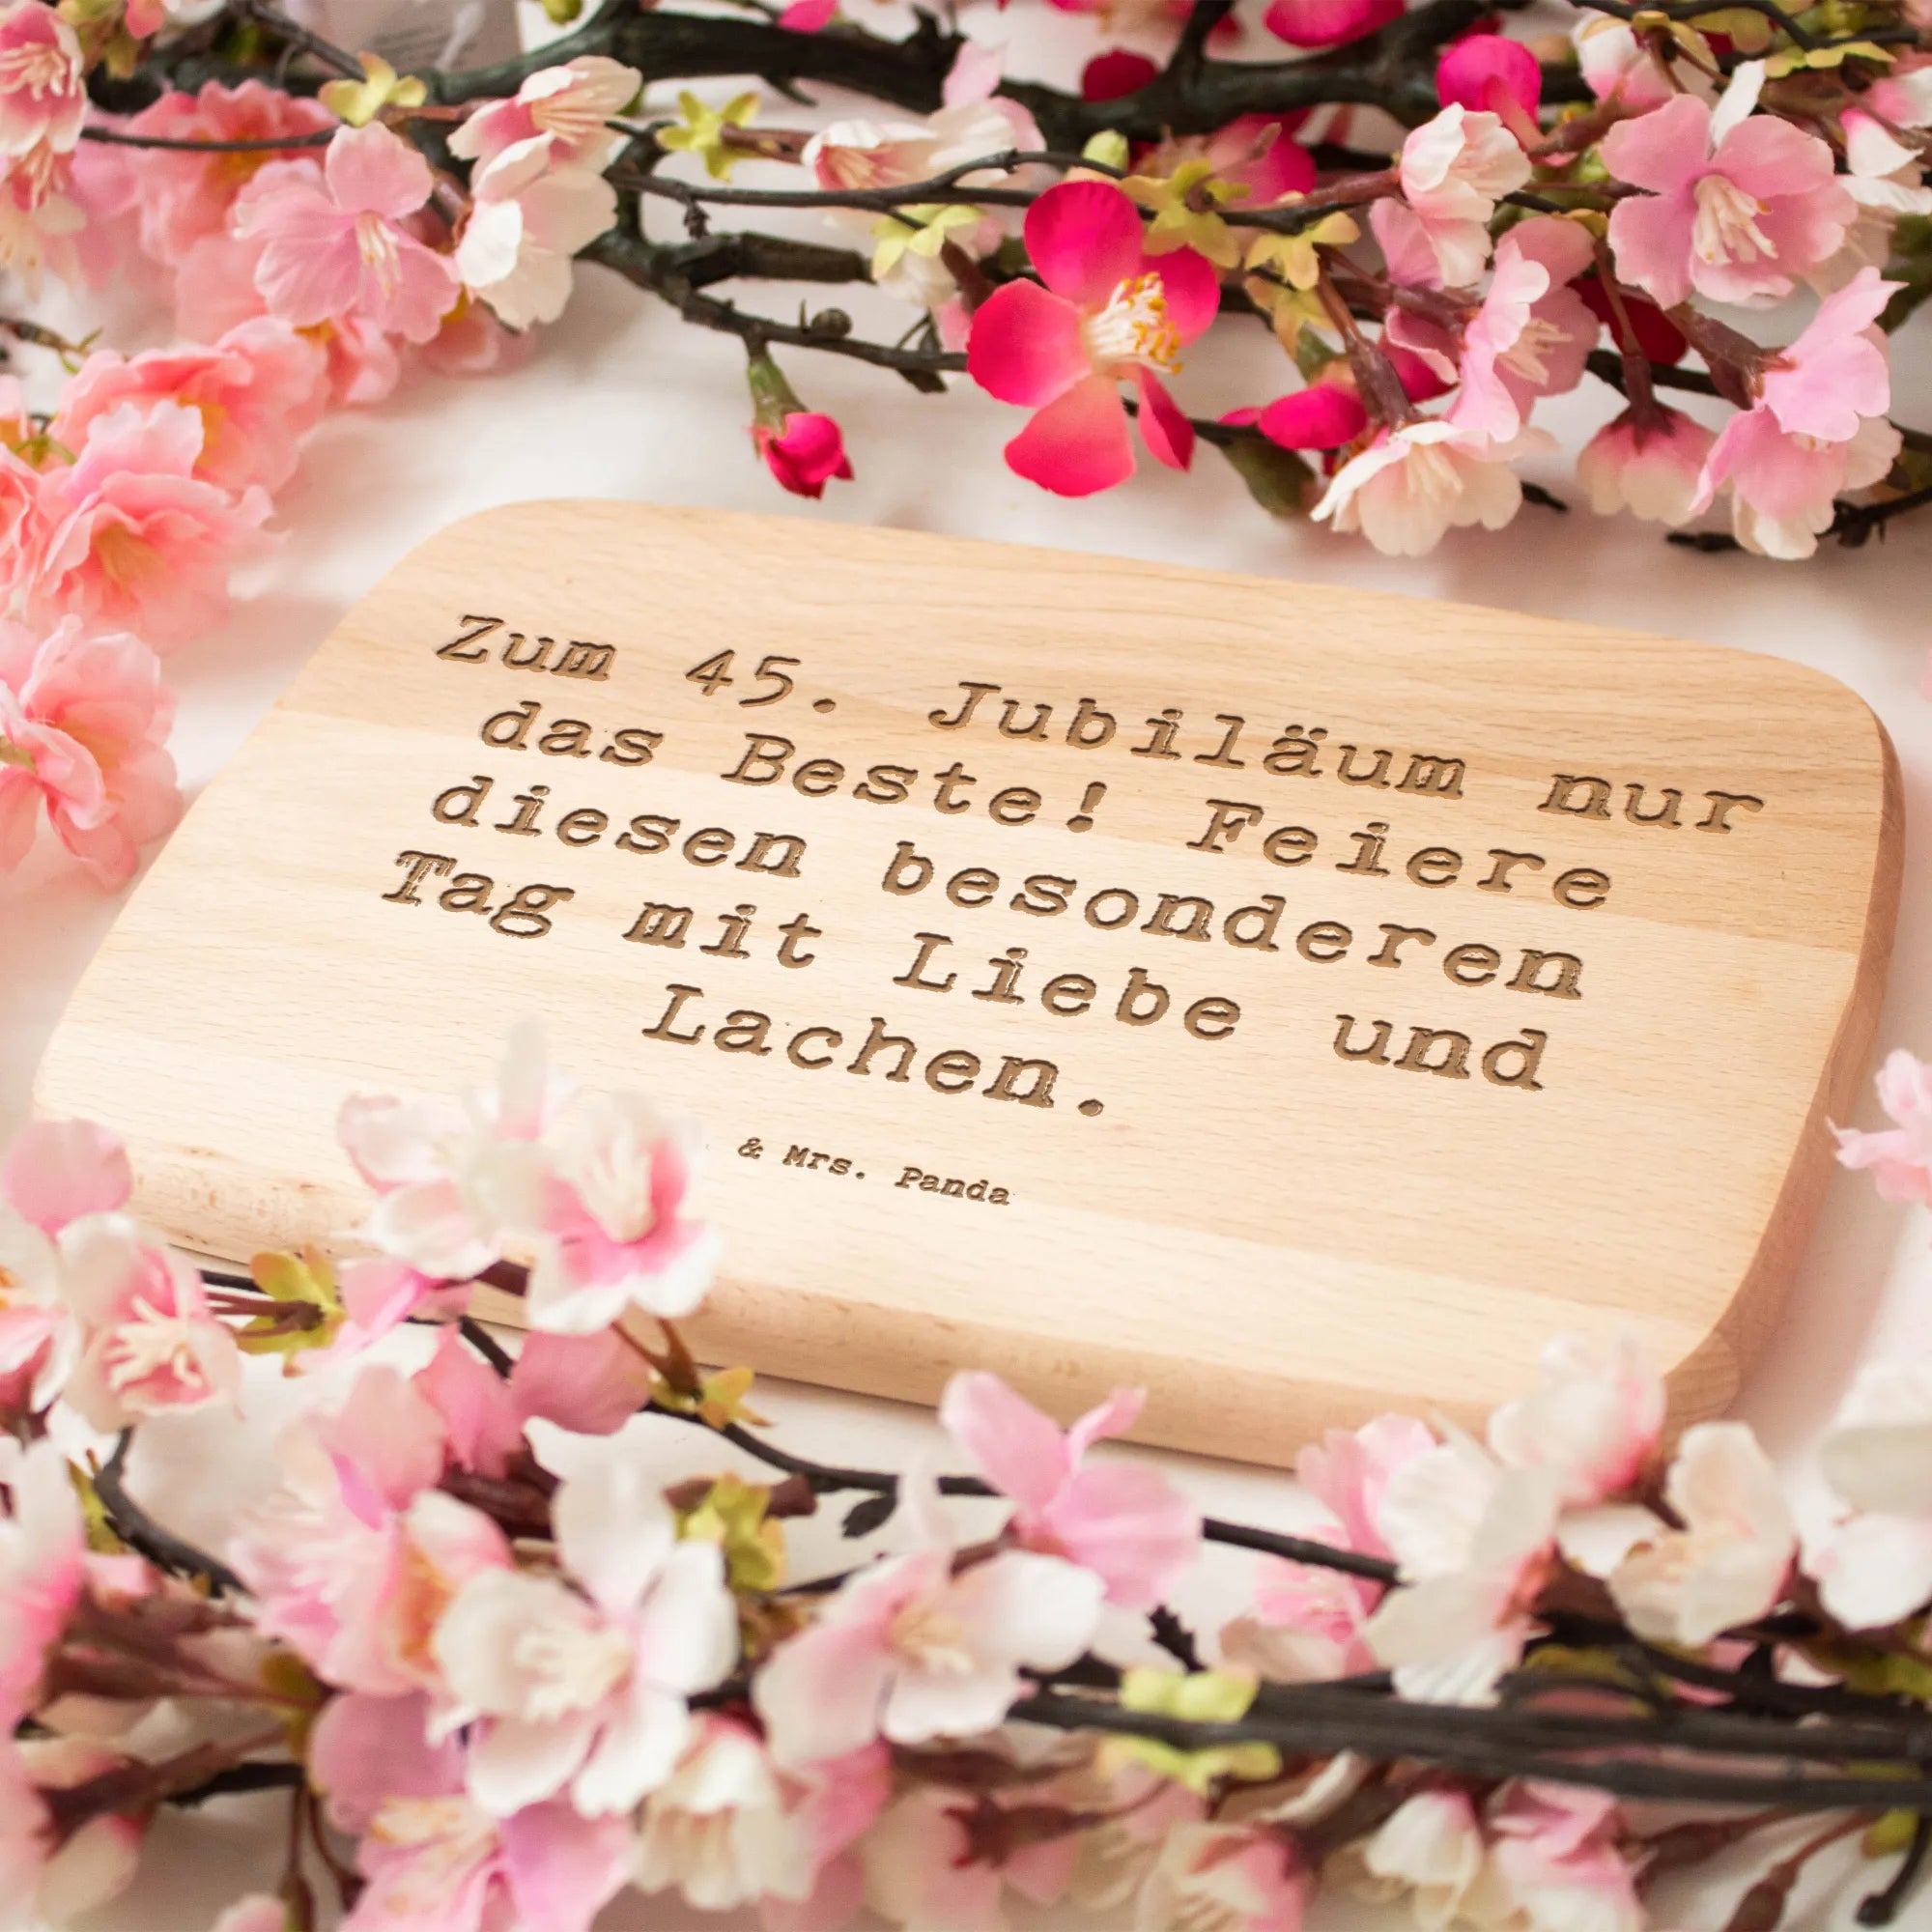 Zum 45. Jubiläum nur
das Beste! Feiere
diesen besonderen
Tag mit Liebe und
Lachen.
& Mrs. Panda